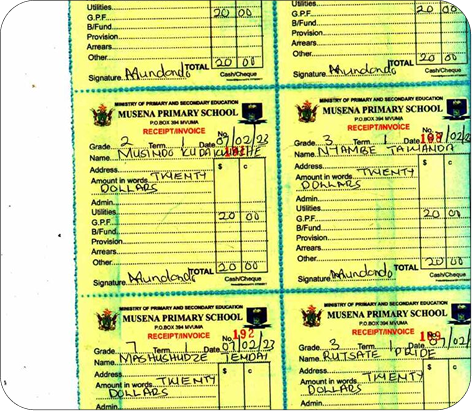 Utilities
G.P.F. 20 00
B/Fund
Provision
Arrears
Other 20 00
TOTAL
Signature AMundondo Cash/Cheque
Utilities
G.P.F. 20 00
B/Fund
Provision
Arrears
Other 20 00
TOTAL
Signature AMundondo Cash/Cheque
MINISTRY OF PRIMARY AND SECONDARY EDUCATION
MUSENA PRIMARY SCHOOL
P.O.BOX 394 MVUMA
RECEIPT/INVOICE
No.
Grade 2 Term 1 Date 07/02/23
Name MUSINDO KUDAKWASHE
Address $ c
Amount in words TWENTY
DOLLARS
Admin
Utilities
G.P.F. 20 00
B/Fund
Provision
Arrears
Other 20 00
TOTAL
Signature AMundondo Cash/Cheque
MINISTRY OF PRIMARY AND SECONDARY EDUCATION
MUSENA PRIMARY SCHOOL
P.O.BOX 394 MVUMA
RECEIPT/INVOICE
No.
Grade 3 Term 1 Date /02/23
Name NTAMBE TAWANDA
Address $ c
Amount in words TWENTY
DOLLARS
Admin
Utilities
G.P.F. 20 00
B/Fund
Provision
Arrears
Other 20 00
TOTAL
Signature AMundondo Cash/Cheque
MINISTRY OF PRIMARY AND SECONDARY EDUCATION
MUSENA PRIMARY SCHOOL
P.O.BOX 394 MVUMA
RECEIPT/INVOICE
192
Grade 7 Term 1 Date 07/02/23
Name MASHUSHUDZE TENDAI
Address $ c
Amount in words TWENTY
DOLLARS
MINISTRY OF PRIMARY AND SECONDARY EDUCATION
MUSENA PRIMARY SCHOOL
P.O.BOX 394 MVUMA
RECEIPT/INVOICE
No.
Grade 3 Term 1 Date 07/02/
Name RUTSATE PRIDE
Address $ c
Amount in words TWENTY
DOLLARS